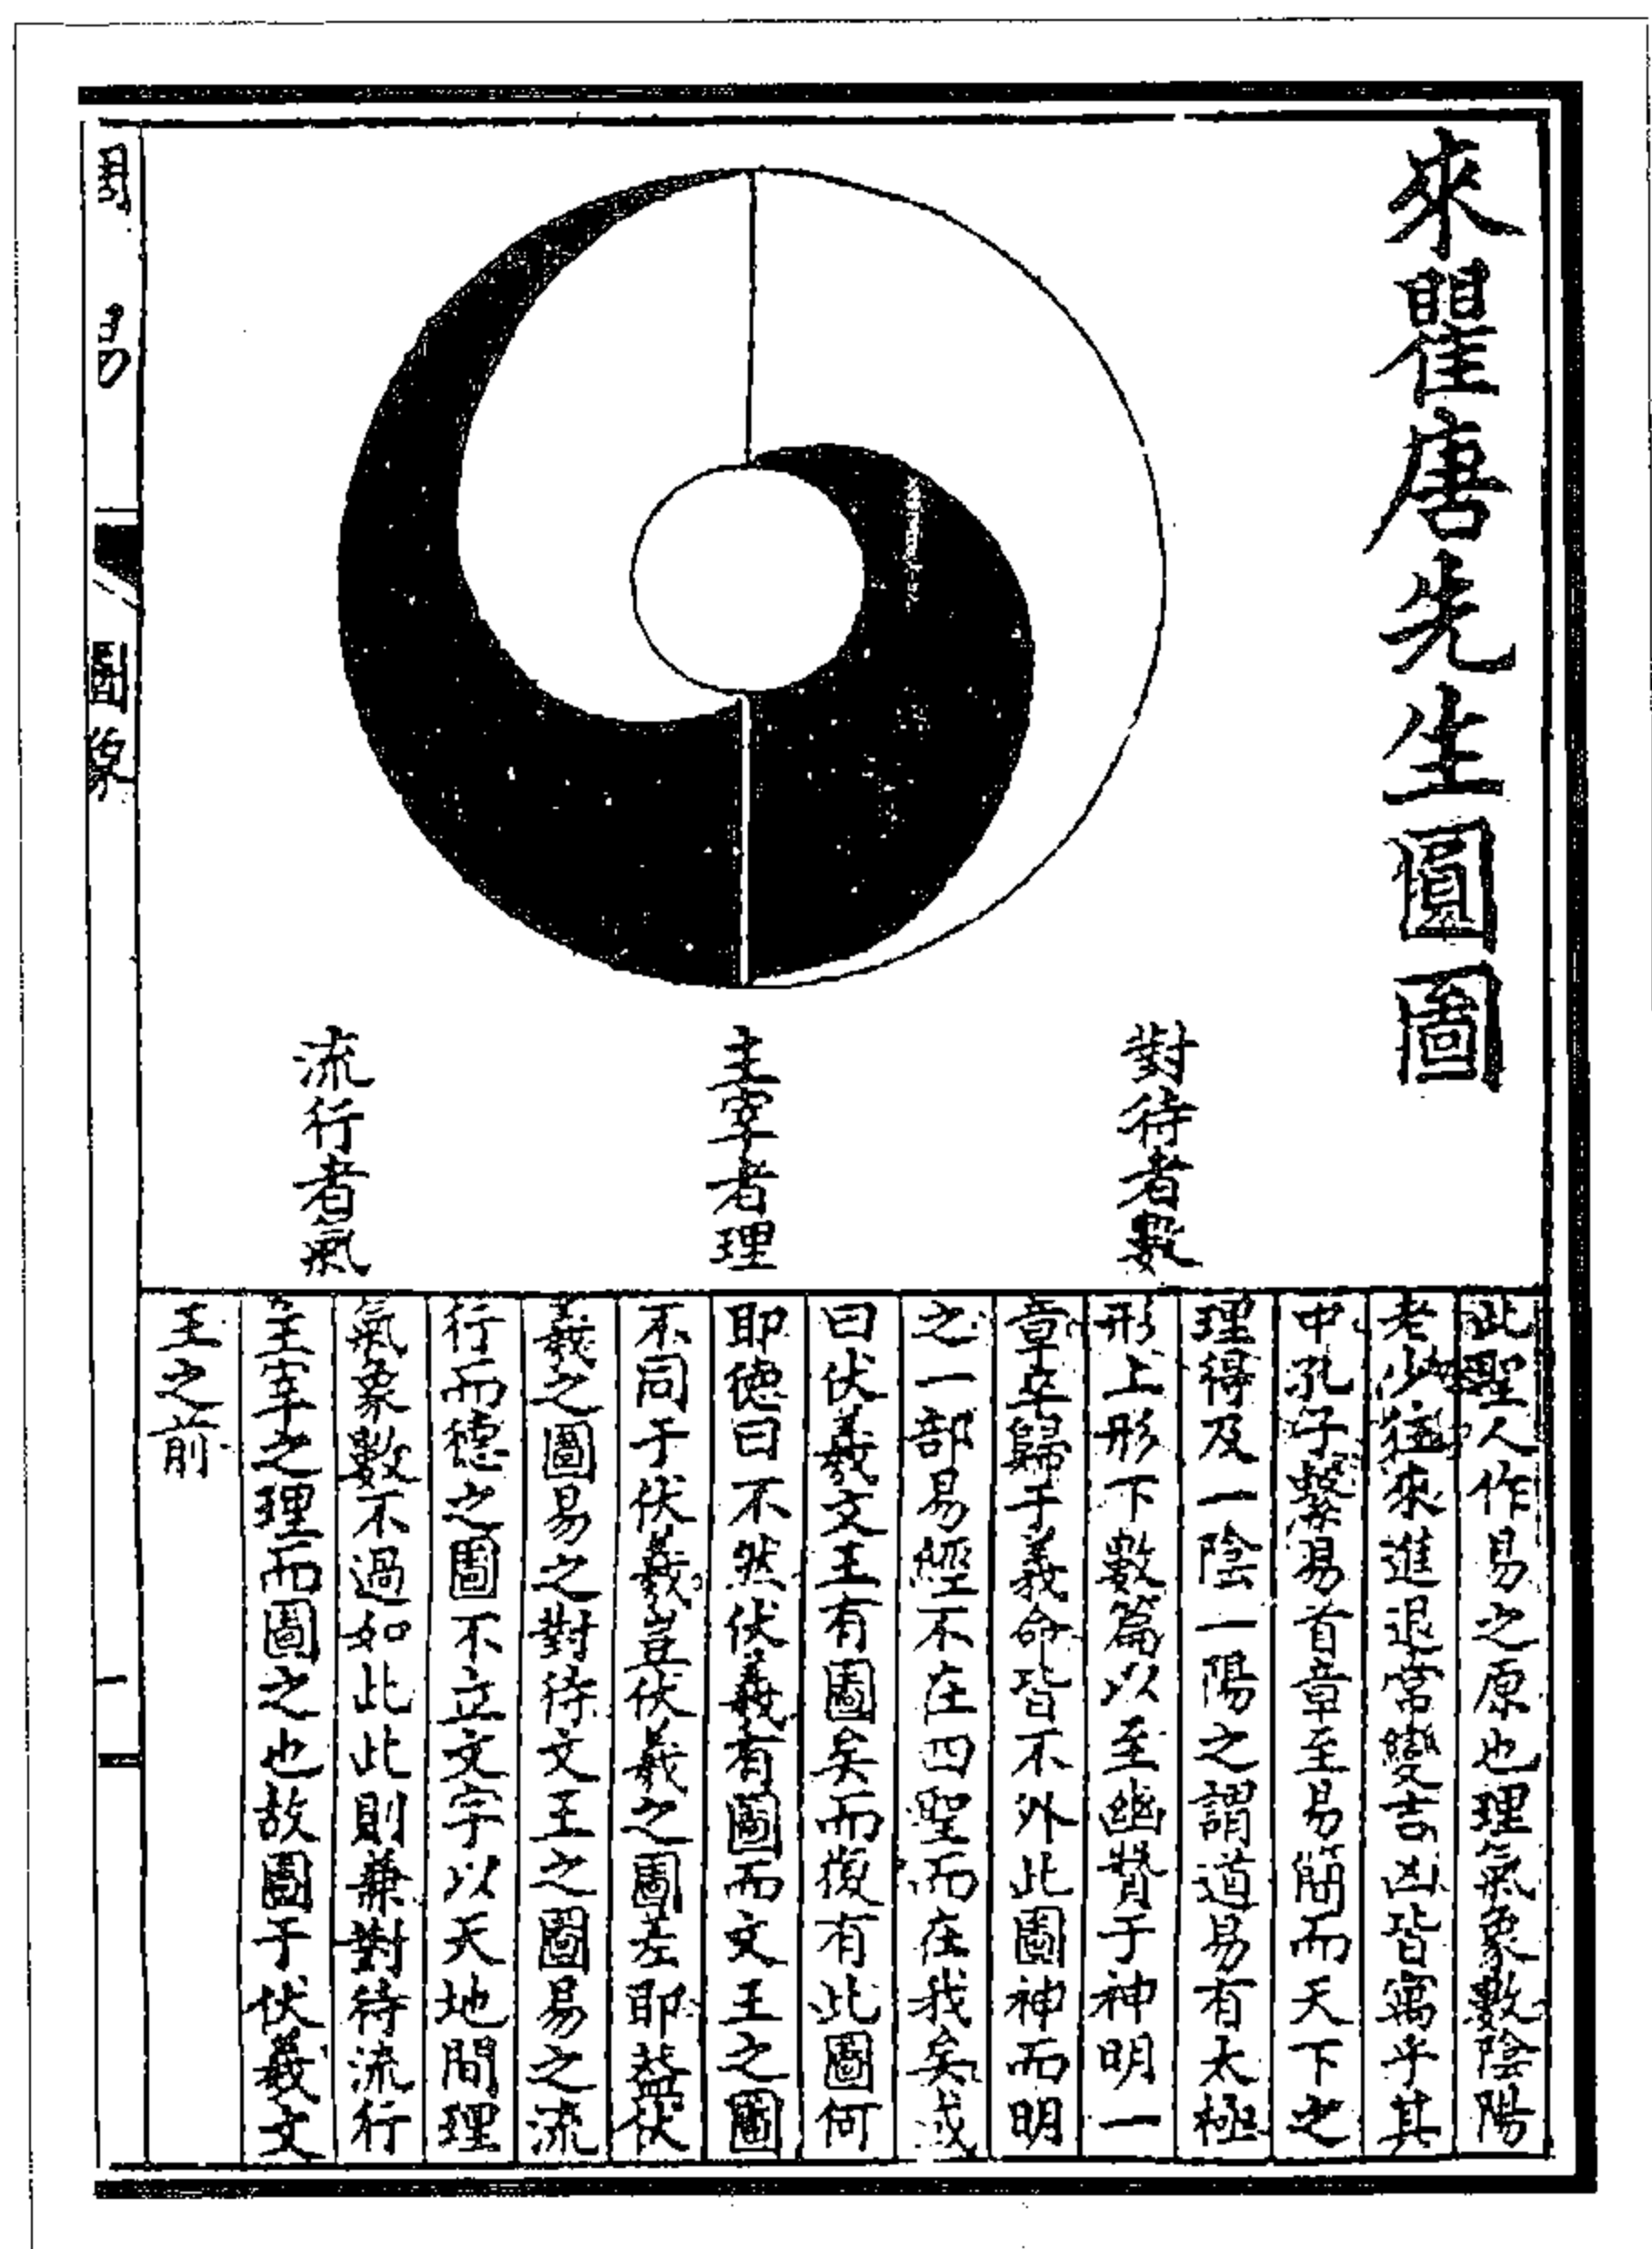 來瞿唐先生圓圖
對待者數
主宰者理
流行者氣
此聖人作易之原也理氣象數陰陽
老少往來進退常變吉凶皆寓乎其
中孔子繫易首章至易簡而天下之
理得及一陰一陽之謂道易有太極
形上形下數篇以至幽贊于神明一
章卒歸于義命皆不外此圖神而明
之一部易經不在四聖而在我矣或
曰伏羲文王有圖矣而復有此圖何
耶德曰不然伏羲有圖而文王之圖
不同于伏羲豈伏羲之圖差耶蓋伏
羲之圖易之對待文王之圖易之流
行而德之圖不立文字以天地間理
氣象數不過如此此則兼對待流行
主宰之理而圖之也故圖于伏羲文
王之前
圖象
一